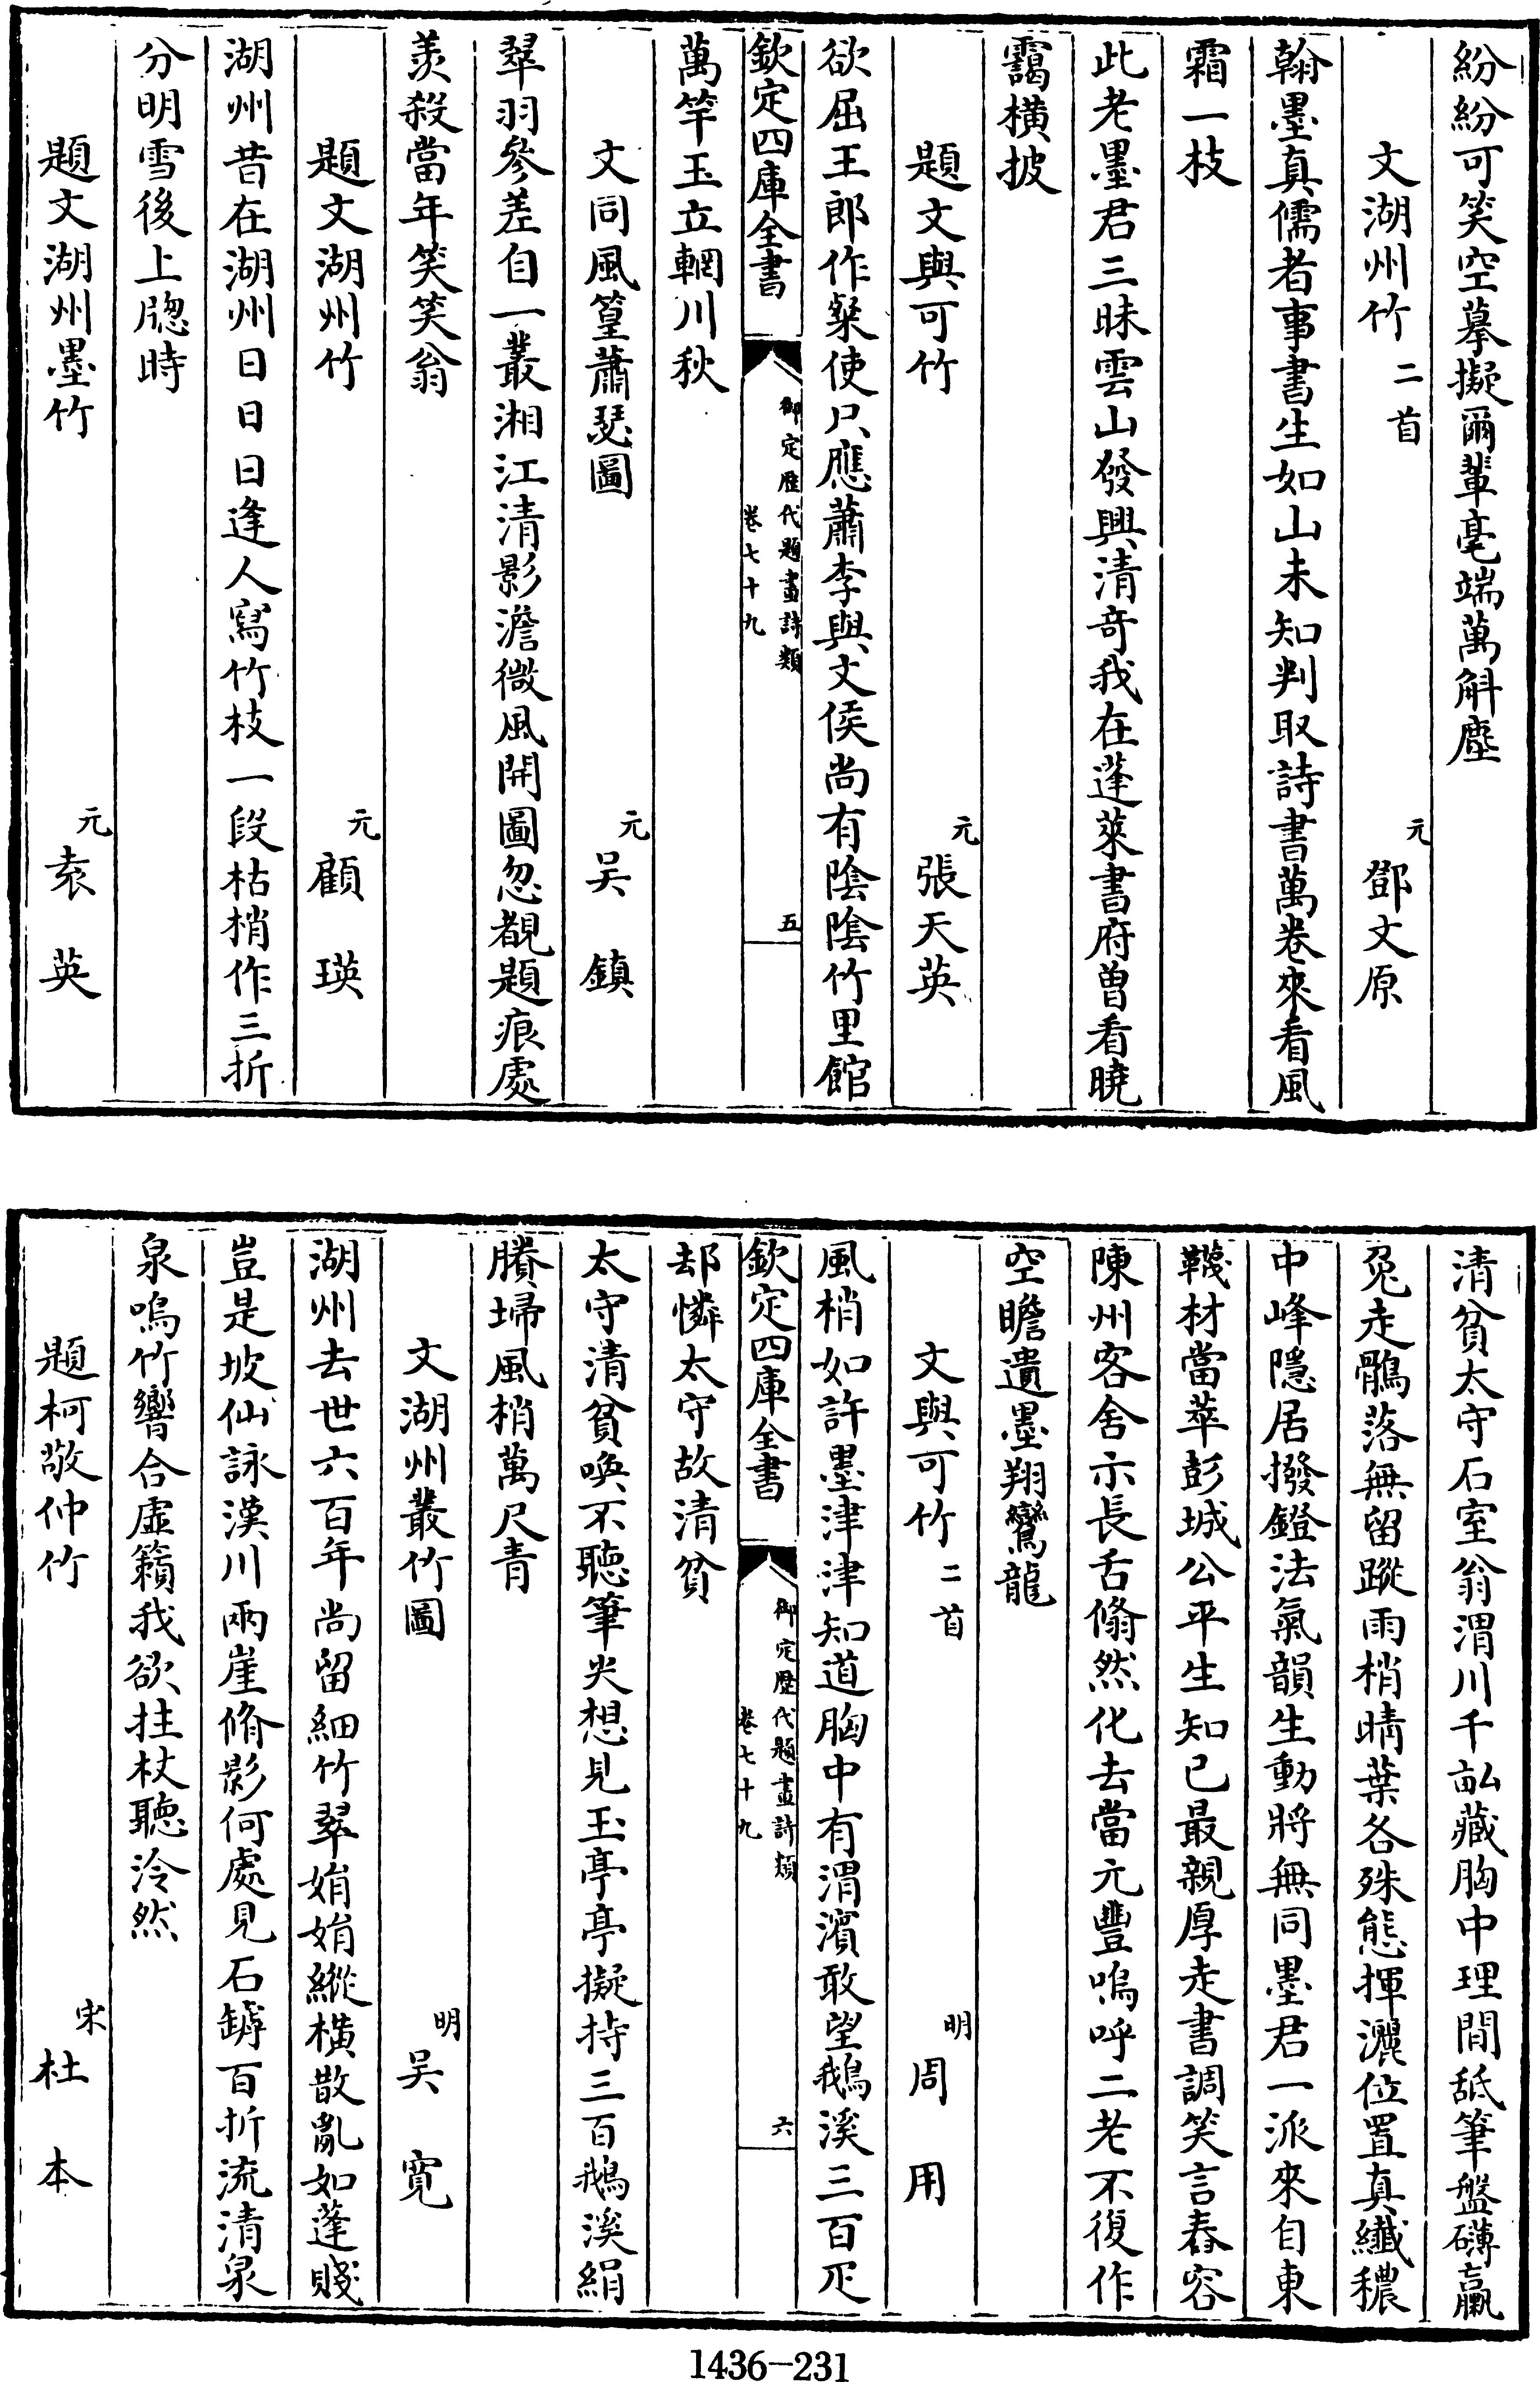 紛紛可笑空摹擬爾輩毫端萬斛塵
文湖州竹二首　元鄧文原
翰墨真儒者事書生如山未知判取詩書萬卷來看風
霜一枝
此老墨君三昧雲山發興清奇我在蓬萊書府曽看曉
靄橫披
題文與可竹　元張天英
欲屈王郎作粲使只應蕭李與文侯尚有陰陰竹里館
欽定四庫全書　御定歴代題畫詩類卷七十九　五
萬竿玉立輞川秋
文同風篁蕭瑟圖　元吴鎮
翠羽參差自一叢湘江清影澹微風開圖忽覩題痕處
羨殺當年笑笑翁
題文湖州竹　元顧瑛
湖州昔在湖州日日日逢人寫竹枝一段枯梢作三折
分明雪後上牕時
題文湖州墨竹　元袁英
清貧太守石室翁渭川千畝藏胸中理閒舐筆盤礴臝
兔走鶻落無留蹤雨梢晴葉各殊態揮灑位置真纖穠
中峰隱居撥鐙法氣韻生動將無同墨君一派來自東
韈材當萃彭城公平生知已最親厚走書調笑言舂容
陳州客舍示長舌翛然化去當元豐嗚呼二老不復作
空瞻遺墨翔鸞龍
文與可竹二首　明周用
風梢如許墨津津知道胸中有渭濱敢望鵝溪三百疋
欽定四庫全書　御定歴代題畫詩類卷七十九　六
却憐太守故清貧
太守清貧喚不聽筆尖想見玉亭亭擬持三百鵝溪絹
賸埽風梢萬尺青
文湖州叢竹圖　明吴寛
湖州去世六百年尚留細竹翠娟娟縱橫散亂如蓬賤
豈是坡仙詠漢川兩崖脩影何處見石罅百折流清泉
泉鳴竹響合虚籟我欲拄杖聽泠然
題柯敬仲竹　宋杜本
1436-231